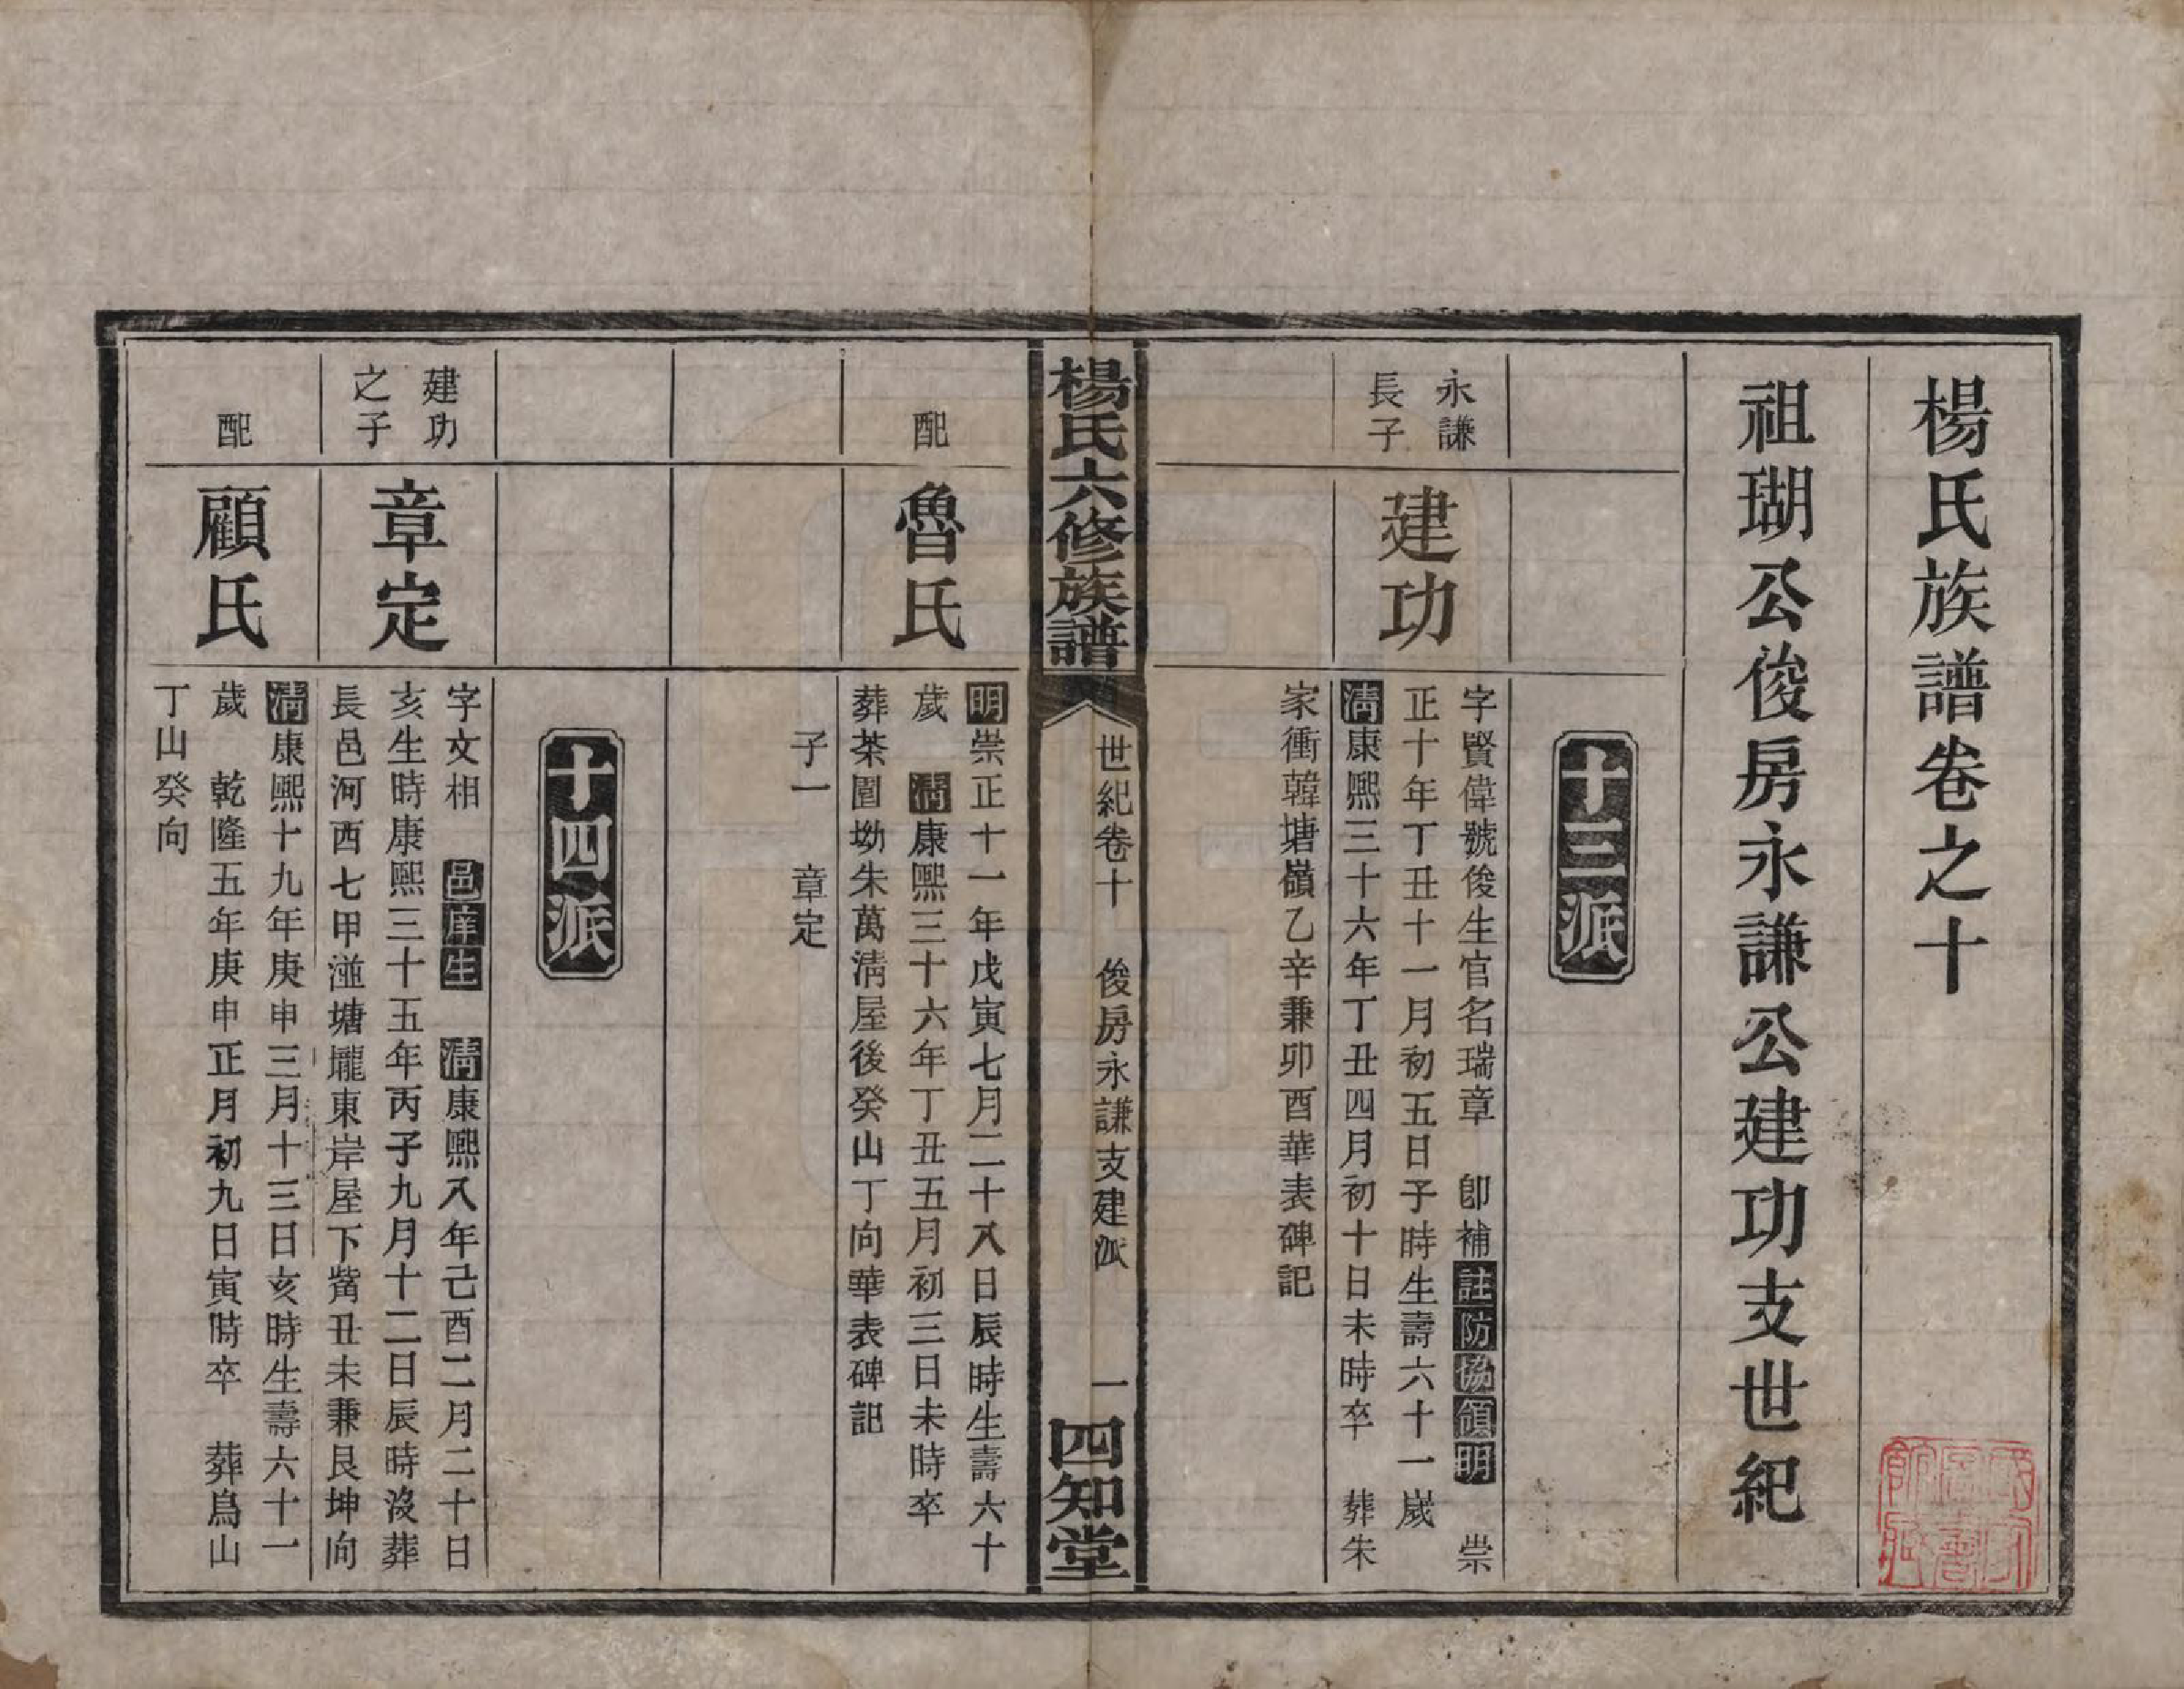 楊氏族譜卷之十
祖瑚公俊房永謙公建功支世紀
十三派
永謙
長子
建功
字賢偉號俊生官名瑞章　卽補註防協領明　崇
正十年丁丑十一月初五日子時生壽六十一歲
淸康熙三十六年丁丑四月初十日未時卒　葬朱
家衝韓塘嶺乙辛兼卯酉華表碑記
楊氏六修族譜
世紀卷十　俊房永謙支建派　一
四知堂
配
魯氏
明崇正十一年戊寅七月二十八日辰時生壽六十
歲　淸康熙三十六年丁丑五月初三日未時卒
葬茶園坳朱萬淸屋後癸山丁向華表碑記
子一　章定
十四派
建功
之子
章定
字文相　邑庠生　淸康熙八年己酉二月二十日
亥生時康熙三十五年丙子九月十二日辰時沒葬
長邑河西七甲湴塘壠東岸屋下觜丑未兼艮坤向
配
顧氏
淸康熙十九年庚申三月十三日亥時生壽六十一
歲　乾隆五年庚申正月初九日寅時卒　葬烏山
丁山癸向